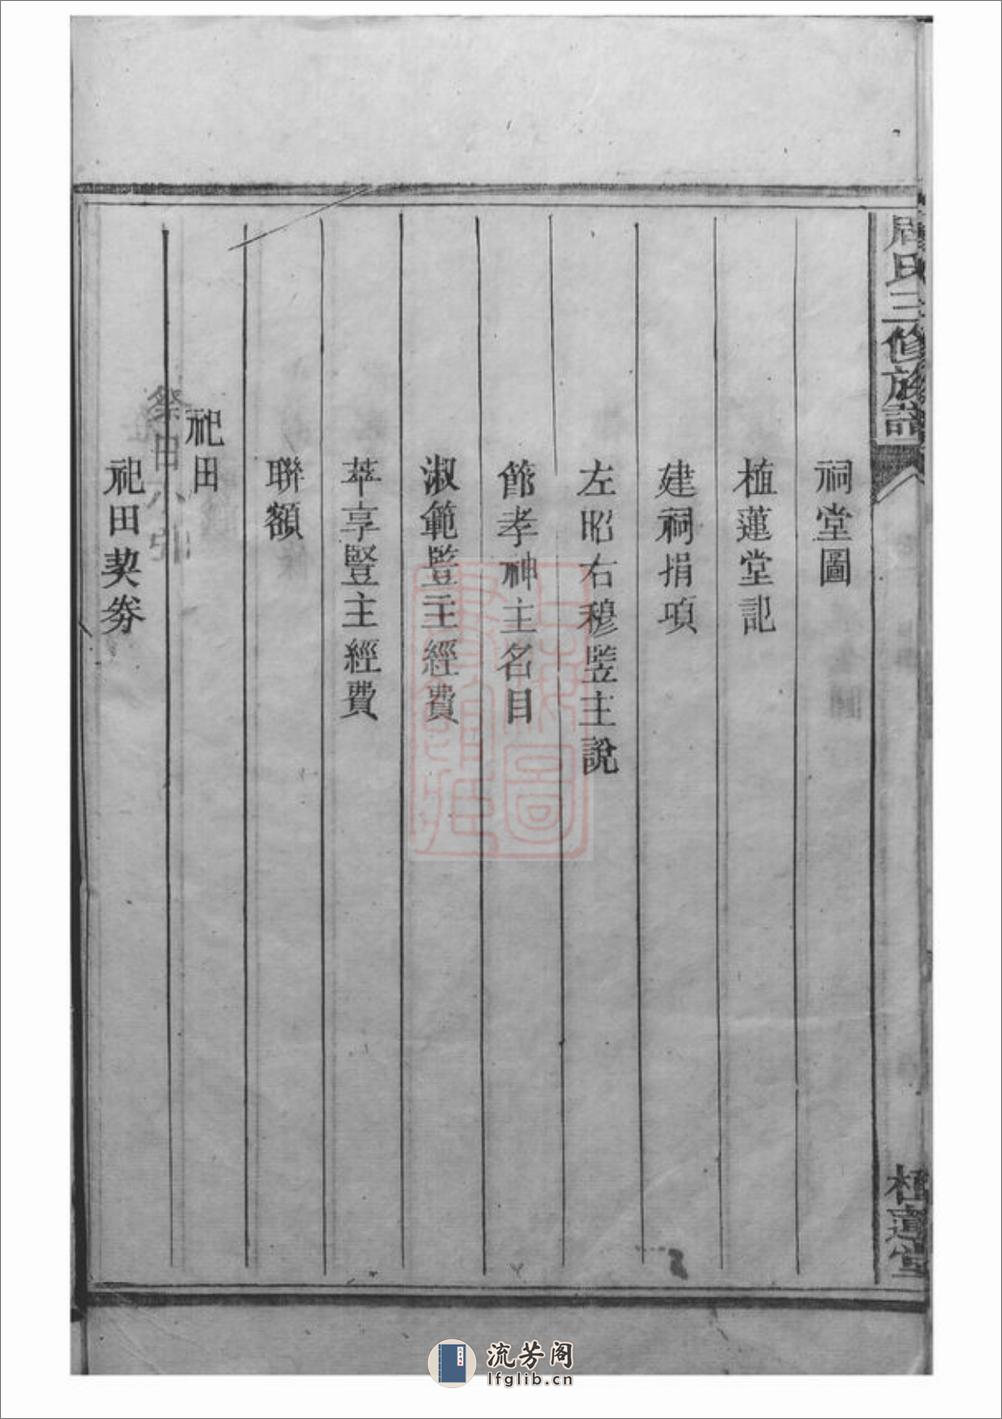 周氏三修族譜
植蓮堂
祠堂圖
植蓮堂記
建祠捐項
左昭右穆竪主說
節孝神主名目
淑範竪主經費
萃享豎主經費
聯額
祀田
祭田小引
祀田契券
流芳阁
lfglib.cn